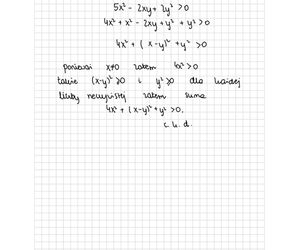 5x² - 2xy + 2y² > 0
4x² + x² - 2xy + y² + y² > 0
4x² + (x-y)² + y² > 0
ponieważ x≠0 zatem 4x² > 0
także (x-y)² ≥ 0 i y² ≥ 0 dla każdej
liczby rzeczywistej zatem suma
4x² + (x-y)² + y² > 0,
c.k.d.